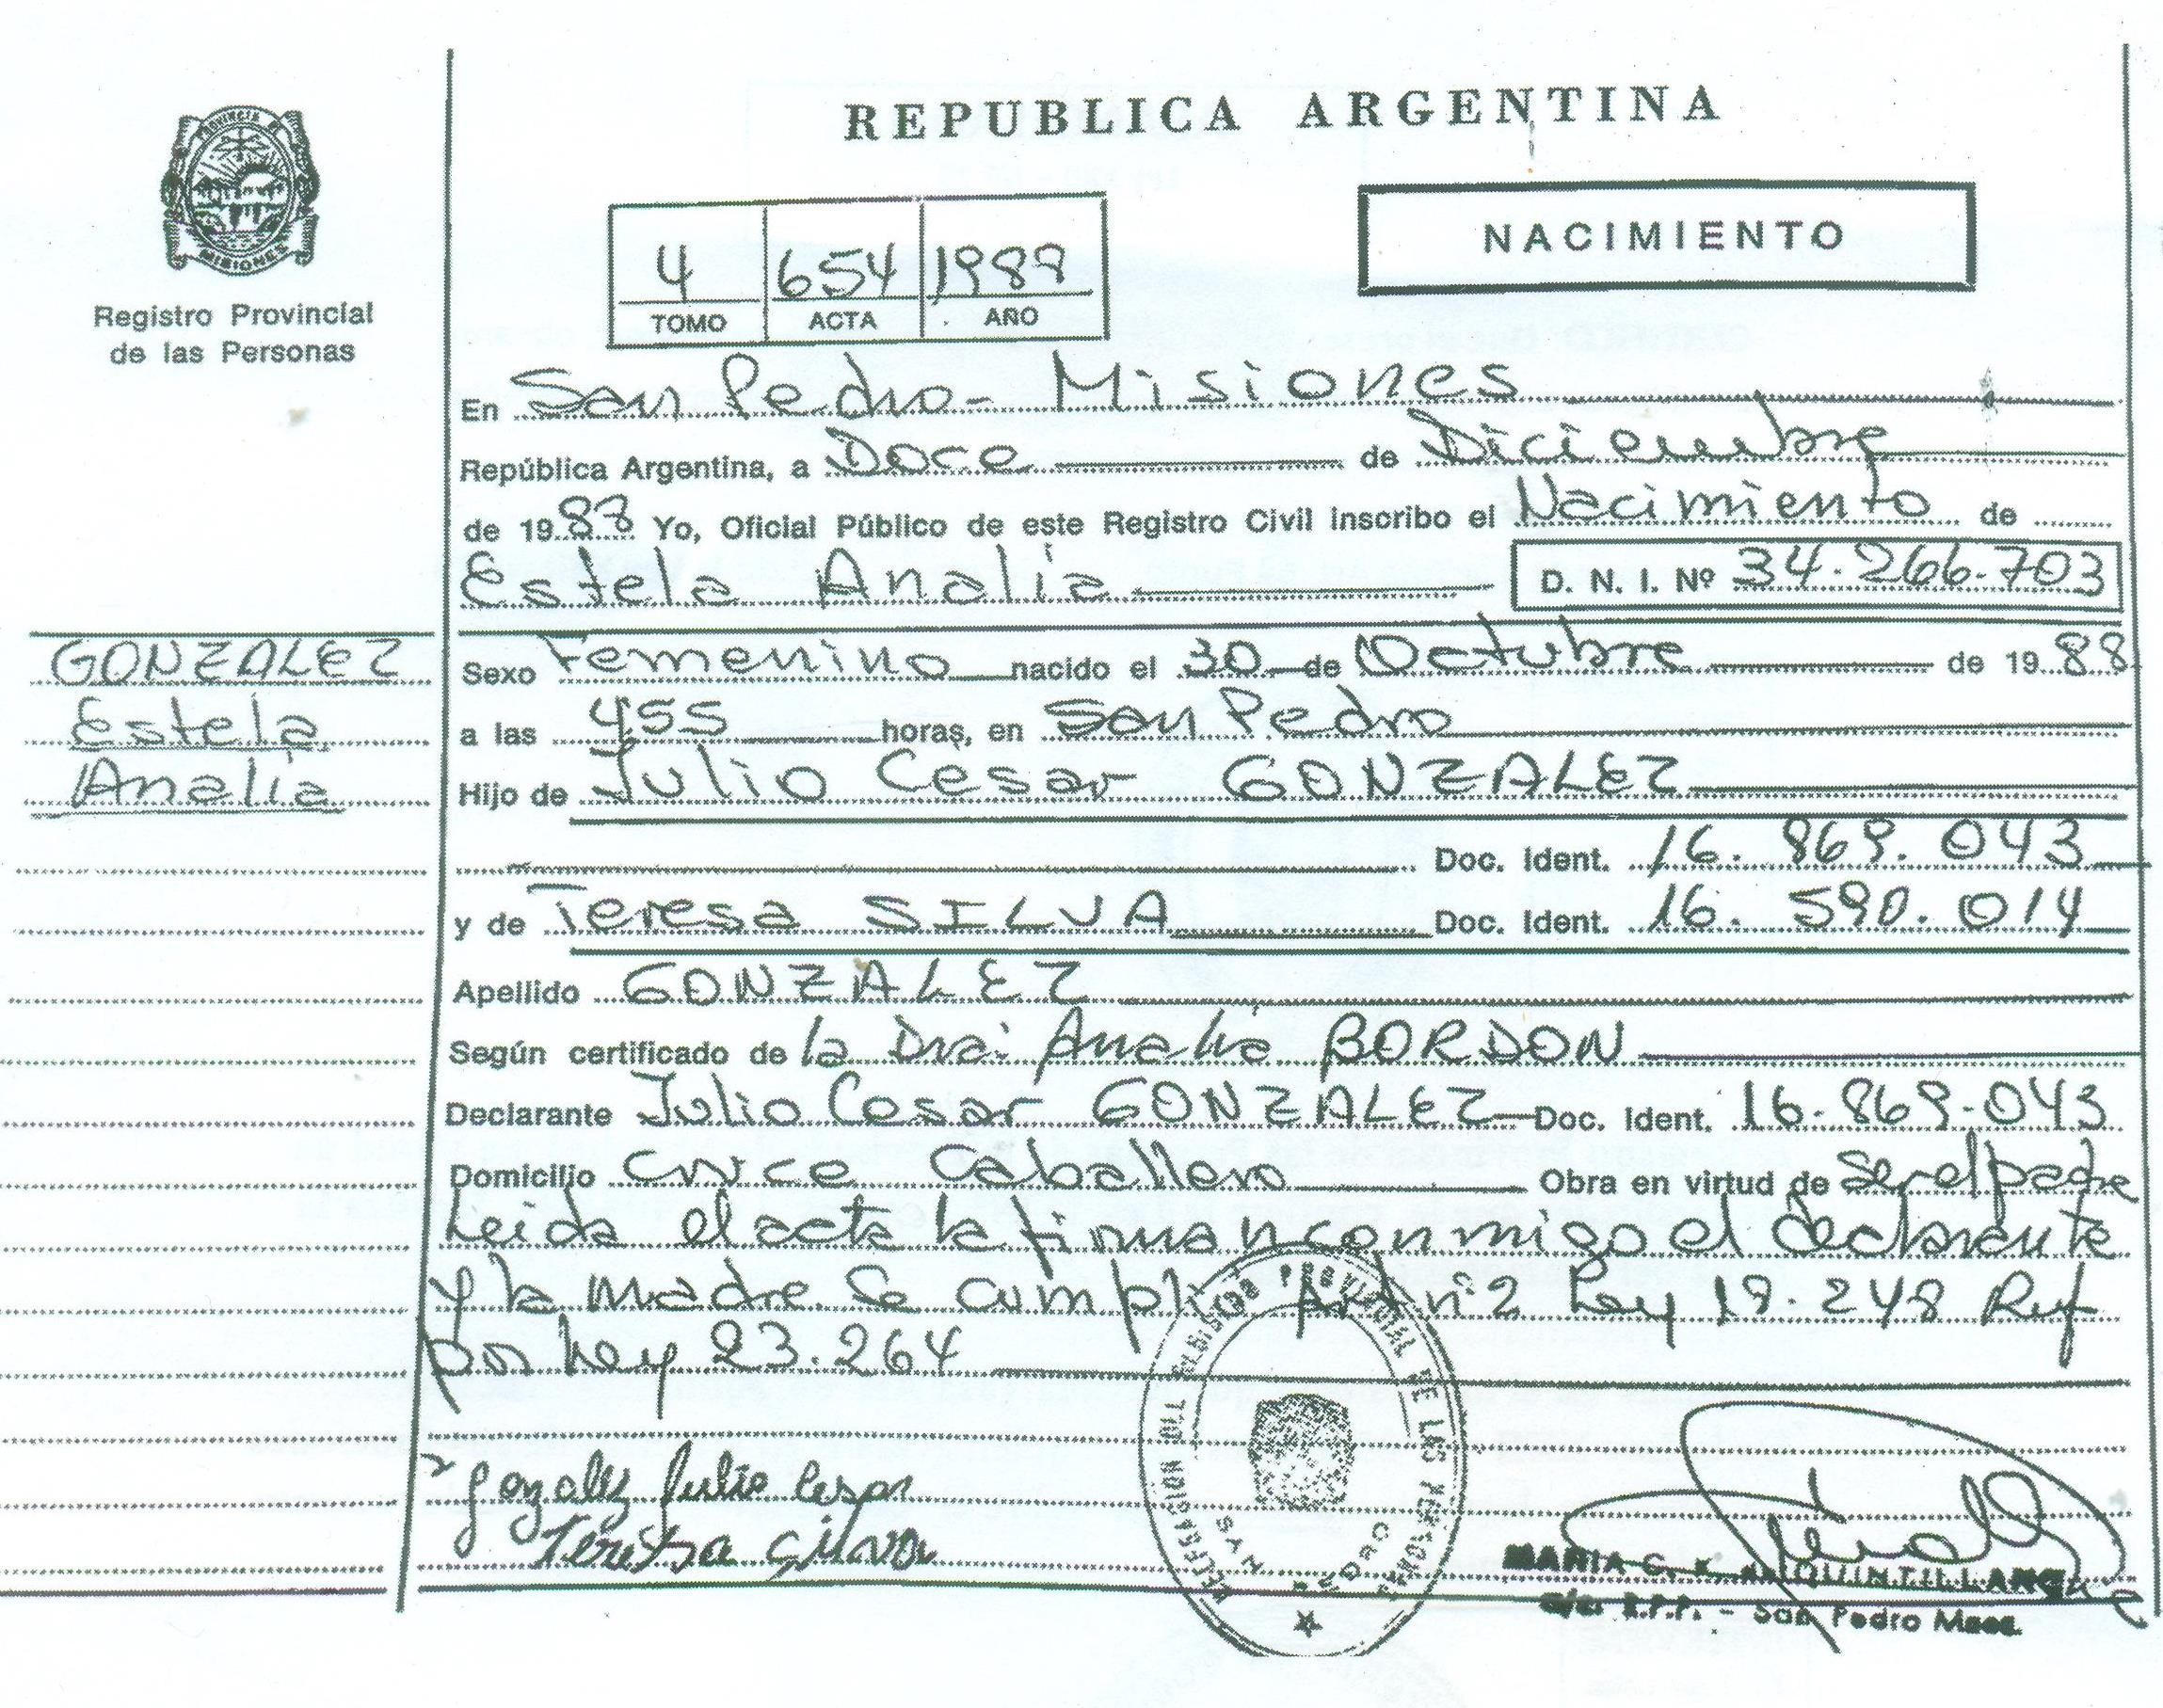 REPUBLICA ARGENTINA
PROVINCIA DE
MISIONES
Registro Provincial
de las Personas
NACIMIENTO
4 654 1988
TOMO ACTA AÑO
En San Pedro- Misiones
República Argentina, a Doce de Diciembre
de 1988 Yo, Oficial Público de este Registro Civil inscribo el Nacimiento de
Estela Analía
D. N. I. Nº 34.266.703
GONZALEZ
Estela
Analía
Sexo Femenino nacido el 30 de Octubre de 1988
a las 455 horas, en San Pedro
Hijo de Julio Cesar GONZALEZ
Doc. Ident. 16.869.043
y de Teresa SILVA Doc. Ident. 16.590.014
Apellido GONZALEZ
Según certificado de la Dra: Analia BORDON
Declarante Julio Cesar GONZALEZ Doc. Ident. 16.869.043
Domicilio Cruce Caballero Obra en virtud de ser el padre
Leida el acta la firman conmigo el declarante
y la madre. Se cumplio Art nº2 Ley 18.248 Ref
por Ley 23.264
Gonzalez Julio Cesar
Teresa Silva
REGISTRO PROVINCIAL DE LAS PERSONAS
SAN PEDRO
MARIA C. K. de QUINTILLAN
R.P.P. - San Pedro Mnes.